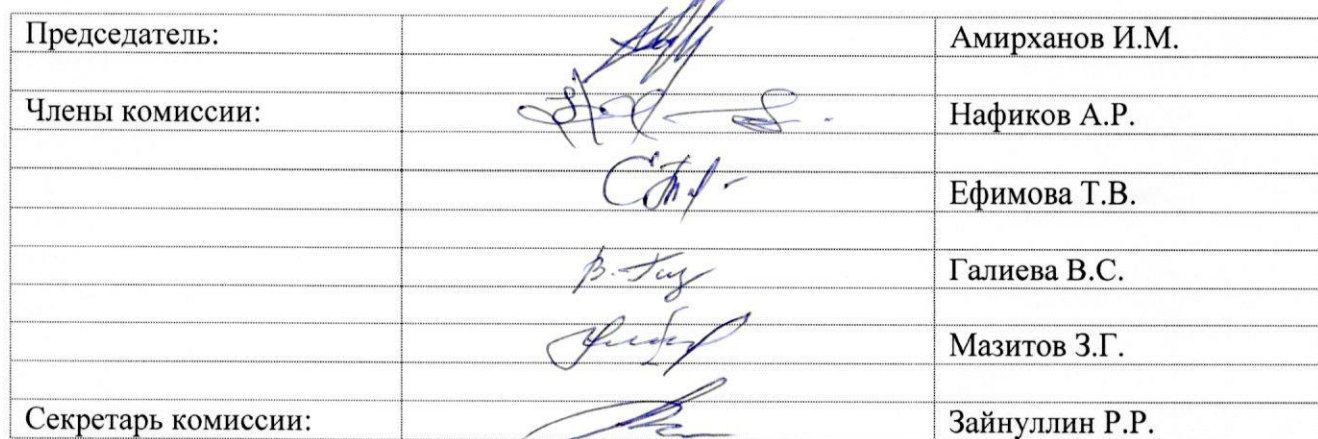 Председатель: Амирханов И.М.
Члены комиссии: Нафиков А.Р.
Ефимова Т.В.
Галиева В.С.
Мазитов З.Г.
Секретарь комиссии: Зайнуллин Р.Р.